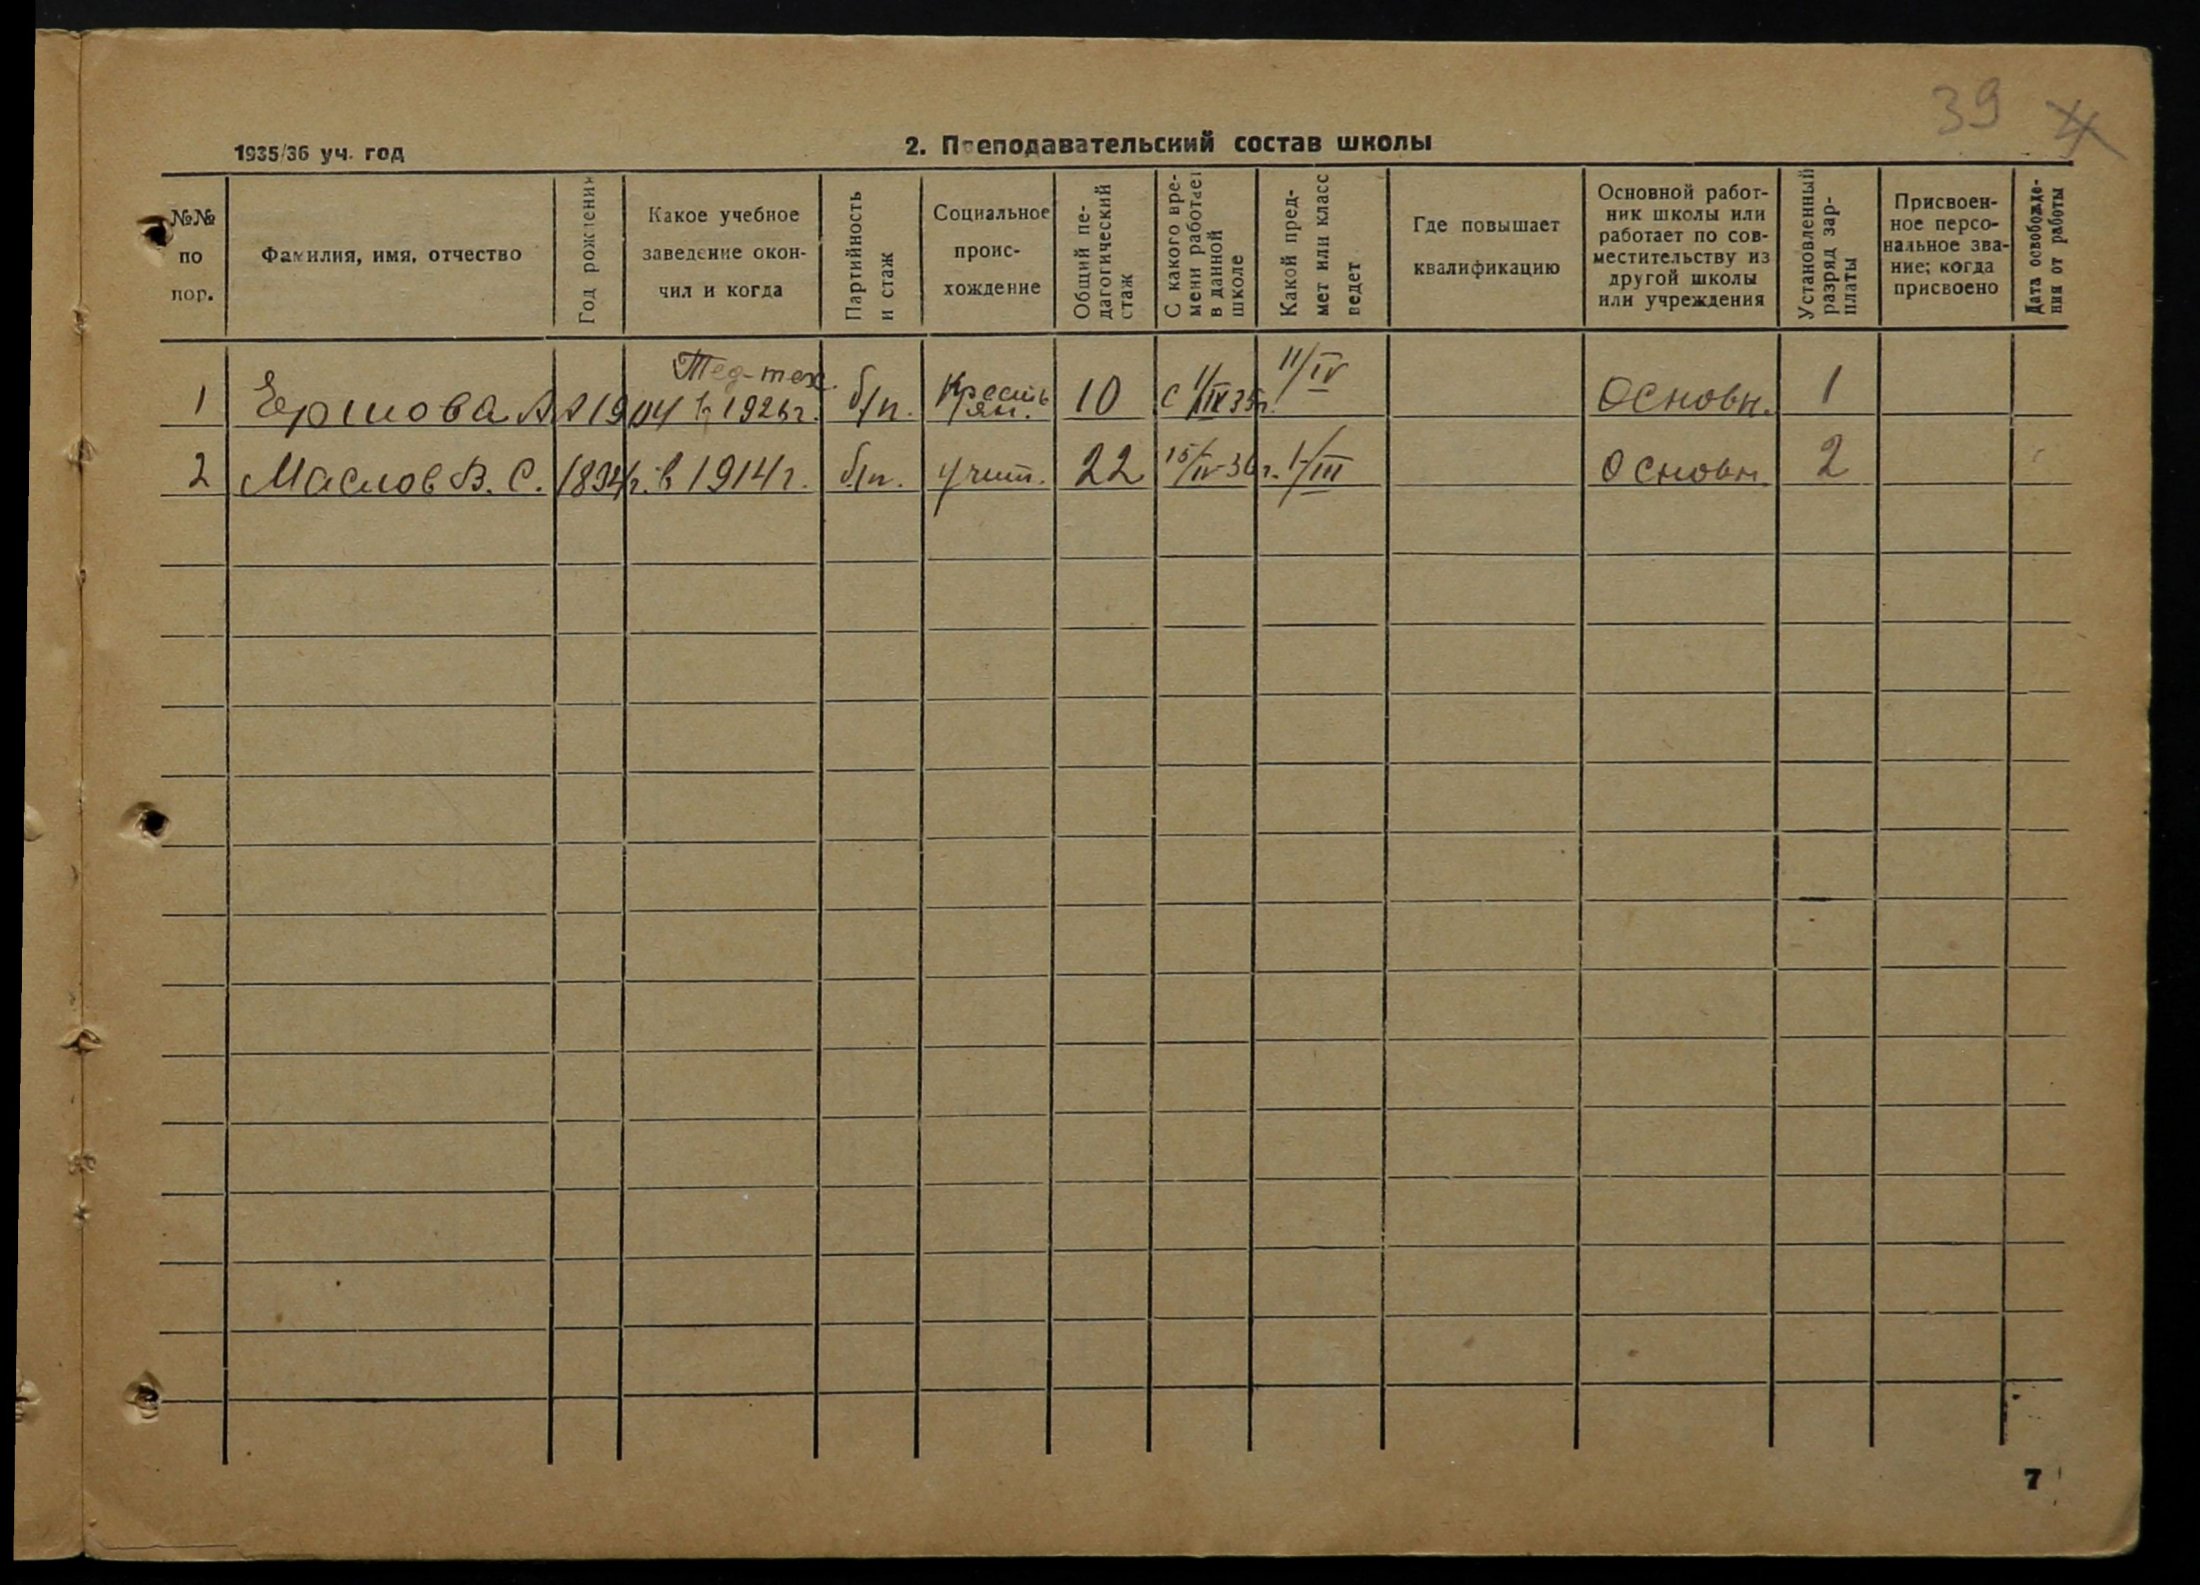 39
1935/36 уч. год
2. Преподавательский состав школы
№№ по пор.
Фамилия, имя, отчество
Год рождения
Какое учебное заведение окон-
чил и когда
Партийность и стаж
Социальное проис-
хождение
Общий пе-
дагогический стаж
С какого вре-
мени работает в данной школе
Какой пред-
мет или класс ведет
Где повышает квалификацию
Основной работ-
ник школы или работает по сов-
местительству из другой школы или учреждения
Установленный разряд зар-
платы
Присвоен-
ное персо-
нальное зва-
ние; когда присвоено
Дата освобожде-
ния от работы
1 Ершова А А 1904 Пед-тех. в 1926г. б/п. Крестьян. 10 с 1/IX 35г. II/IV Основн. 1
2 Маслов В. С. 1894г. в 1914г. б/п. учит. 22 15/IV-36г. I/III Основн. 2
7